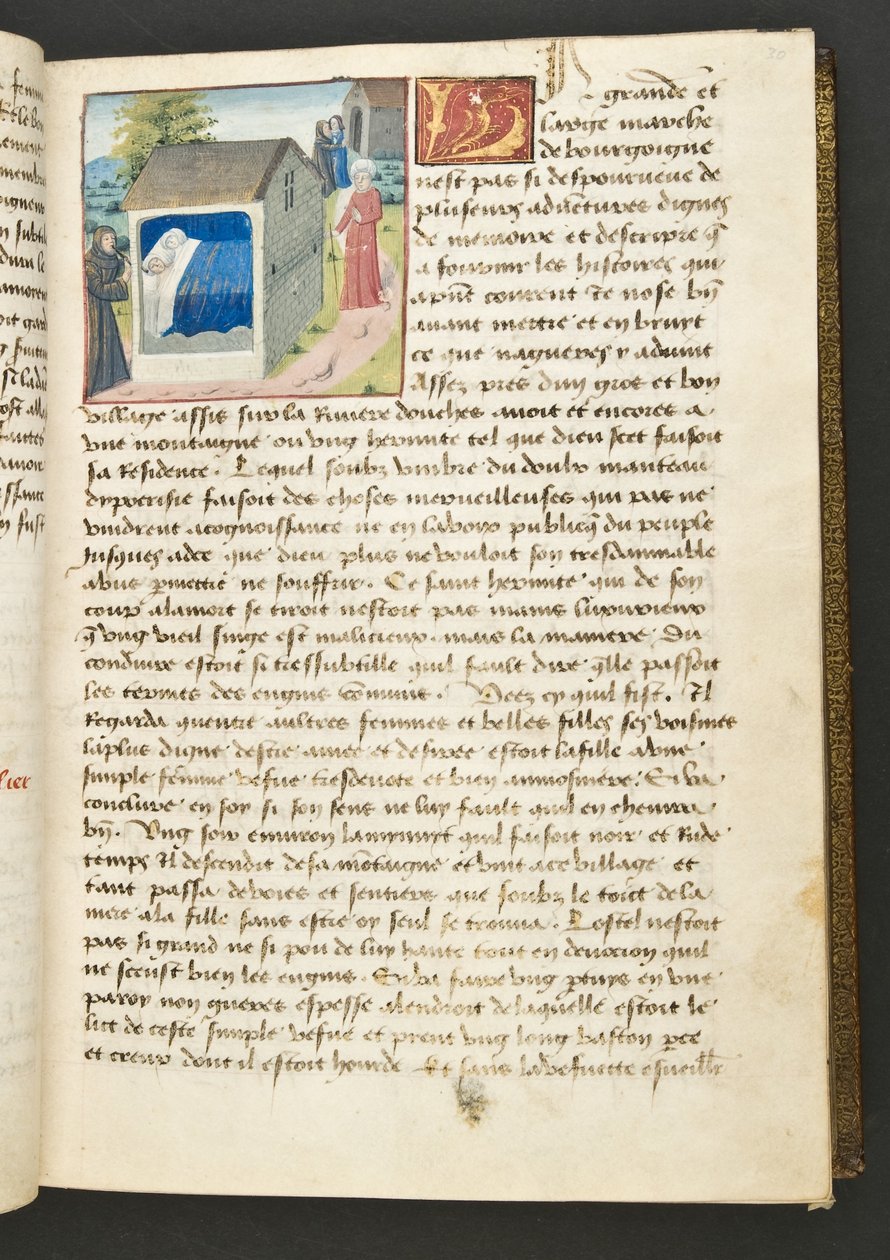 30
La grande et
large marche
de bourgoigne
nest pas si despourueue de
pluseurs aduētures dignes
de memoire et descripre q̄
a fournir les histoires qui
apn̄t courent Je nose bn̄
auant mettre et en bruyt
ce que nagueres y aduint
Assez pres dun gros et bon
village assis sur la Riuiere douches auoit et encores a
vne montaigne ou vng hermite tel que dieu scet faisoit
sa Residence. Lequel soubz vmbre du doulx manteau
dypocrisie faisoit des choses merueilleuses qui pas ne
vindrent acognoissance ne en la voix publicq̄ du peuple
Jusques adce que dieu plus ne vouloit son tresdamnable
abus pmettre ne souffrir. Ce saint hermite qui de son
coup alamort se tiroit nestoit pas mains luxurieux
q̄ vng vieil singe est malicieux. mais la maniere du
conduire estoit si tressubtille quil fault dire q̄lle passoit
les termes des engins cōmuns. Veez cy quil fist. Il
Regarda quentre aultres femmes et belles filles ses voisines
laplus digne destre amee et desiree estoit lafille avne
simple fēme vefue tresdeuote et bien aumosniere. Et va
conclure en soy si son sens ne luy fault quil en cheuira
bn̄. Vng soir enuiron lamynuyt quil faisoit noir et Rude
temps Il descendit desa mōtaigne et vint ace village et
tant passa de voies et sentiers que soubz le toict dela
mere ala fille sans estre oy seul se trouua. Lostel nestoit
pas si grand ne si pou de luy hante tout en deuocion quil
ne sceust bien les engins. Et va faire vng ptuys en vne
paroy non gueres espesse alendroit delaquelle estoit le
lict de ceste simple vefue et prent vng long baston pce
et creux dont il estoit hourde Et sans lavefuette esueillr